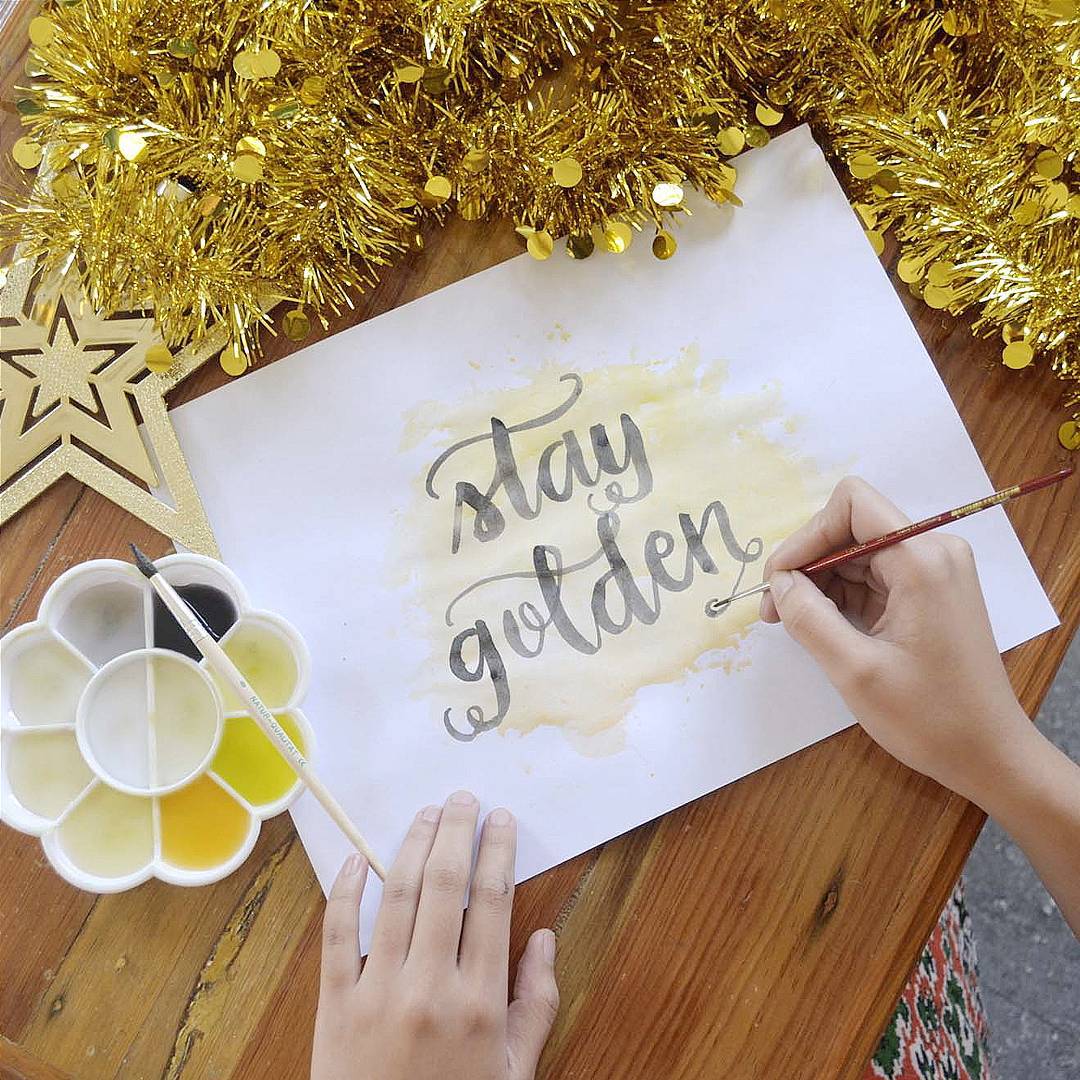 stay
golden
NATUR-QUALITÄT